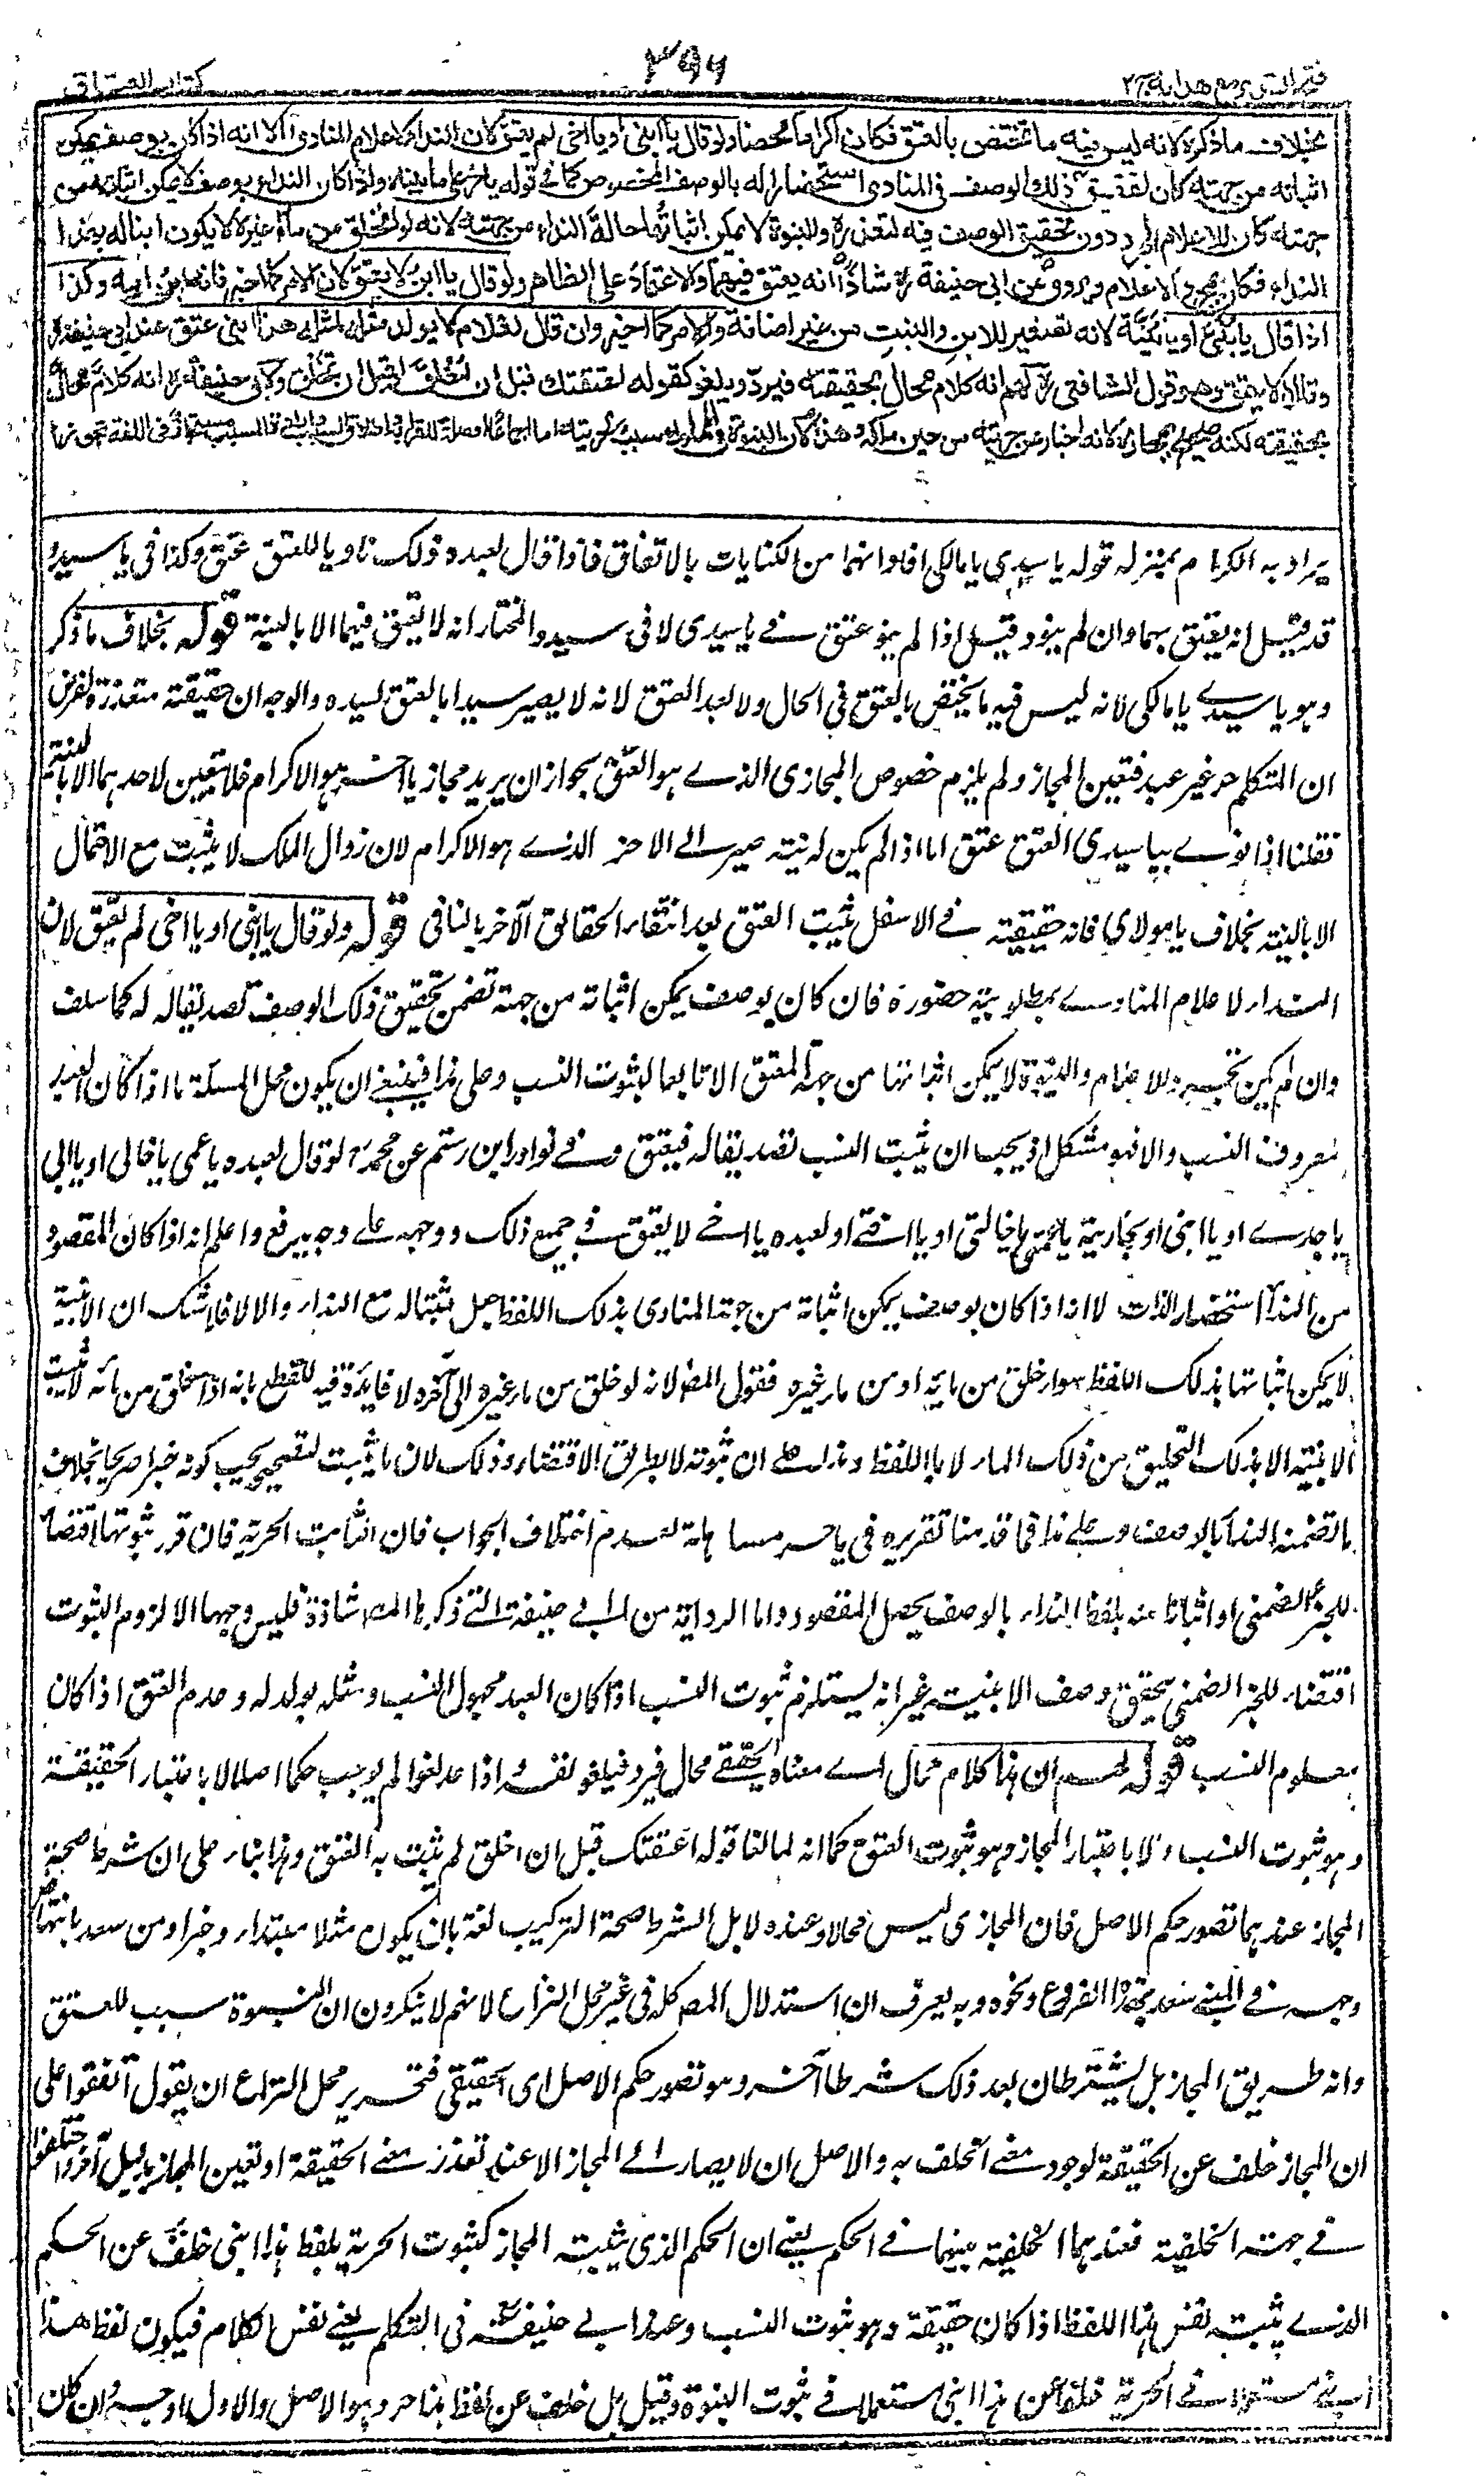 فتح القدير مع هدايه ج٢
٣٩٦
كتاب العتاق
بخلاف ما ذكره لانه ليس فيه ما يختص بالعتق فكان اكراما محضا ولو قال يا ابنى او يا اخى لم يعتق لان النداء لاعلام المنادى الا انه اذا كان بوصف يمكن
اثباته من جهته كان لتحقيق ذلك الوصف فى المنادى استحضارا له بالوصف المخصوص كما فى قوله يا حر على ما بيناه واذا كان النداء بوصف لا يمكن اثباته من
جهته كان للاعلام المجرد دون تحقيق الوصف فيه لتعذره والبنوة لا يمكن اثباتها حالة النداء من جهته لانه لو انخلق من ماء غيره لا يكون ابنا له بهذا
النداء فكان لمجرد الاعلام ويروى عن ابى حنيفة رح شاذا انه يعتق فيهما والاعتماد على الظاهر ولو قال يا ابن لا يعتق لان الامر كما اخبر فانه ابن ابيه وكذا
اذا قال يا بنى او يا بنية لانه تصغير للابن والبنت من غير اضافة والامر كما اخبر وان قال لغلام لا يولد مثله لمثله هذا ابنى عتق عند ابى حنيفة رح
وقالا لا يعتق وهو قول الشافعى رح لهم انه كلام محال بحقيقته فيرد ويلغو كقوله اعتقتك قبل ان اخلق او قبل ان تخلق ولابى حنيفة رح انه كلام محال
بحقيقته لكنه صحيح بمجازه لانه اخبار عن حريته من حين ملكه وهذا لان البنوة فى المملوك سبب لحريته اما اجماعا او صلة للقرابة واطلاق السبب وارادة المسبب مستجاز فى اللغة تجوزا
يراد به الاكرام بمنزلة قوله يا سيدى يا مالكى افاد انهما من الكنايات بالاتفاق فاذا قال لعبده ذلك ناويا للعتق عتق وكذا فى يا سيد و
قد قيل انه يعتق بهما وان لم ينو وقيل اذا لم ينو عتق فى يا سيدى لا فى سيد والمختار انه لا يعتق فيهما الا بالنية قوله بخلاف ما ذكر
وهو يا سيدى يا مالكى لانه ليس فيه ما يختص بالعتق فى الحال ولا بعد العتق لانه لا يصير سيدا بالعتق لسيده والوجه ان حقيقته متعذرة لفرض
ان المتكلم حر غير عبد فتعين المجاز ولم يلزم خصوص المجازى الذى هو العتق بجواز ان يريد مجازيا آخر هو الاكرام فلا يتعين لاحدهما الا بالنية
فقلنا اذا نوى بيا سيدى العتق عتق اما اذا لم يكن له نية صير الى الاخر الذى هو الاكرام لان زوال الملك لا يثبت مع الاحتمال
الا بالنية بخلاف يا مولاى فانه حقيقته فى الاسفل يثبت العتق بعد انتفاء الحقائق الآخر بالنافى قوله ولو قال يا ابنى او يا اخى لم يعتق لان
النداء لاعلام المنادى بمطلوبية حضوره فان كان بوصف يمكن اثباته من جهته تضمن تحقيق ذلك الوصف تصديقا له كما سلف
وان لم يكن تجرد للاعلام والبنوة لا يمكن اثباتها من جهة المعتق الا تابعا لثبوت النسب وعلى هذا فينبغى ان يكون محل المسئلة ما اذا كان العبد
معروف النسب والا فهو مشكل اذ يجب ان يثبت النسب تصديقا له فيعتق وفى نوادر ابن رستم عن محمد رح لو قال لعبده يا عمى يا خالى او يا ابى
يا جدى او يا ابنى او لجاريته يا عمتى يا خالتى او يا اختى او لعبده يا اخى لا يعتق فى جميع ذلك ووجهه على وجه يرفع واعلم انه اذا كان المقصود
من النداء استحضار الذات لا انه اذا كان بوصف يمكن اثباته من جهة المنادى بذلك اللفظ جعل مثبتا له مع النداء والا لا فلا شك ان الابنية
لا يمكن اثباتها بذلك اللفظ سواء خلق من مائه او من ماء غيره فقول المص لانه لو خلق من ماء غيره الى آخره لا فائدة فيه للقطع بانه اذا تخلق من مائه لا يثبت
الابنية الا بذلك التخليق من ذلك الماء لا باللفظ وهذا على ان ثبوته لا بطريق الاقتضاء وذلك لان ما يثبت لتصحيحه يجب كونه خبرا صريحا بخلاف
ما تضمنه النداء بالوصف وعلى هذا فما قدمنا تقريره فى يا حر مساهلة لعدم اختلاف الجواب فان الثابت الحرية فان قرر ثبوتها اقتضاء
للخبر الضمنى او اثباتا عنه بلفظ النداء بالوصف يحصل المقصود واما الرواية عن ابى حنيفة التى ذكرها المص شاذة فليس وجهها الا لزوم الثبوت
اقتضاء للخبر الضمنى بتحقق وصف الابنية غير انه يستلزم ثبوت النسب اذا كان العبد مجهول النسب ومثله يولد له وعدم العتق اذا كان
معلوم النسب قوله لهم ان هذا كلام محال اى معناه الحقيقى محال فيرد فيلغو لفظه اذا عد لغوا لم يوجب حكما اصلا لا باعتبار الحقيقة
وهو ثبوت النسب ولا باعتبار المجاز وهو ثبوت العتق كما انه لما لغا قوله اعتقتك قبل ان اخلق لم يثبت به العتق وهذا بناء على ان شرط صحة
المجاز عندهما تصور حكم الاصل فان المجازى ليس محالا وعنده لا بل الشرط صحة التركيب لغة بان يكون مثلا مبتداء وخبرا ومن
وجه فى المبنى نفوذ هذا الفروع ونحوه وبه يعرف ان استدلال المص كله فى غير محل النزاع لانهم لا ينكرون ان البنوة سبب للعتق
وانه طريق المجاز بل يشترطان بعد ذلك شرطا آخر وهو تصور حكم الاصل اى الحقيقى فتحرير محل النزاع ان يقول اتفقوا على
ان المجاز خلف عن الحقيقة لوجود معنى الخلف به والاصل ان لا يصار الى المجاز الا عند تعذر معنى الحقيقة او تعين المجاز بدليل آخر واختلفوا
فى جهة الخلفية فعندهما الخلفية بينهما فى الحكم يعنى ان الحكم الذى يثبت المجاز كثبوت الحرية بلفظ هذا ابنى خلف عن الحكم
الذى يثبت نفس هذا اللفظ اذا كان حقيقة وهو ثبوت النسب وعند ابى حنيفة رح فى التكلم يعنى نفس الكلام فيكون لفظ هذا
ابنى مستعملا فى الحرية خلفا عن هذا ابنى مستعملا فى ثبوت البنوة وقيل بل خلف عن لفظ هذا حر وهو الاصل والاول اوجه وان كان